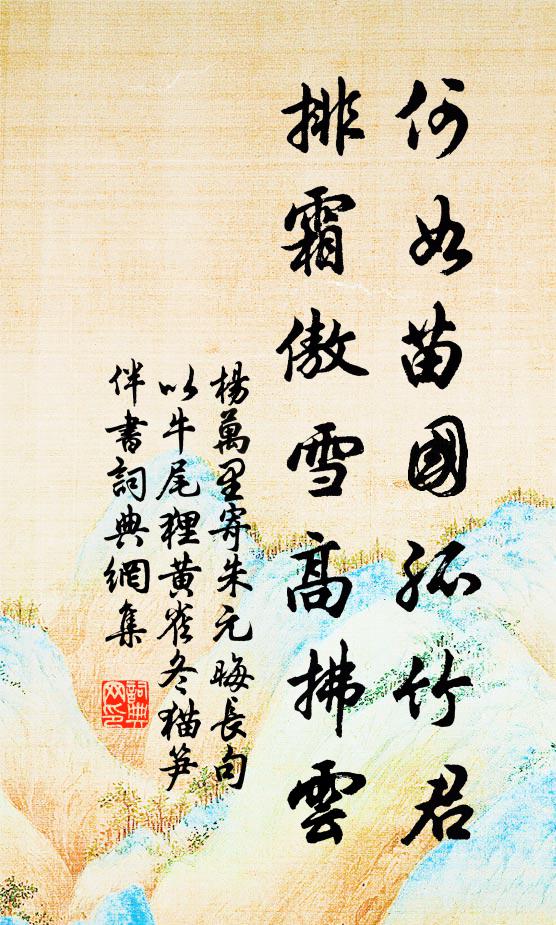 何如苗國孤竹君
排霜傲雪高拂雲
楊萬里寄朱元晦長句
以牛尾狸黃雀冬猫笋
伴書詞典網集
詞典網印